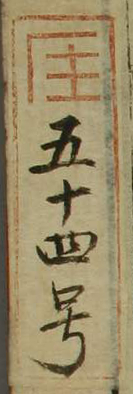 五十四号